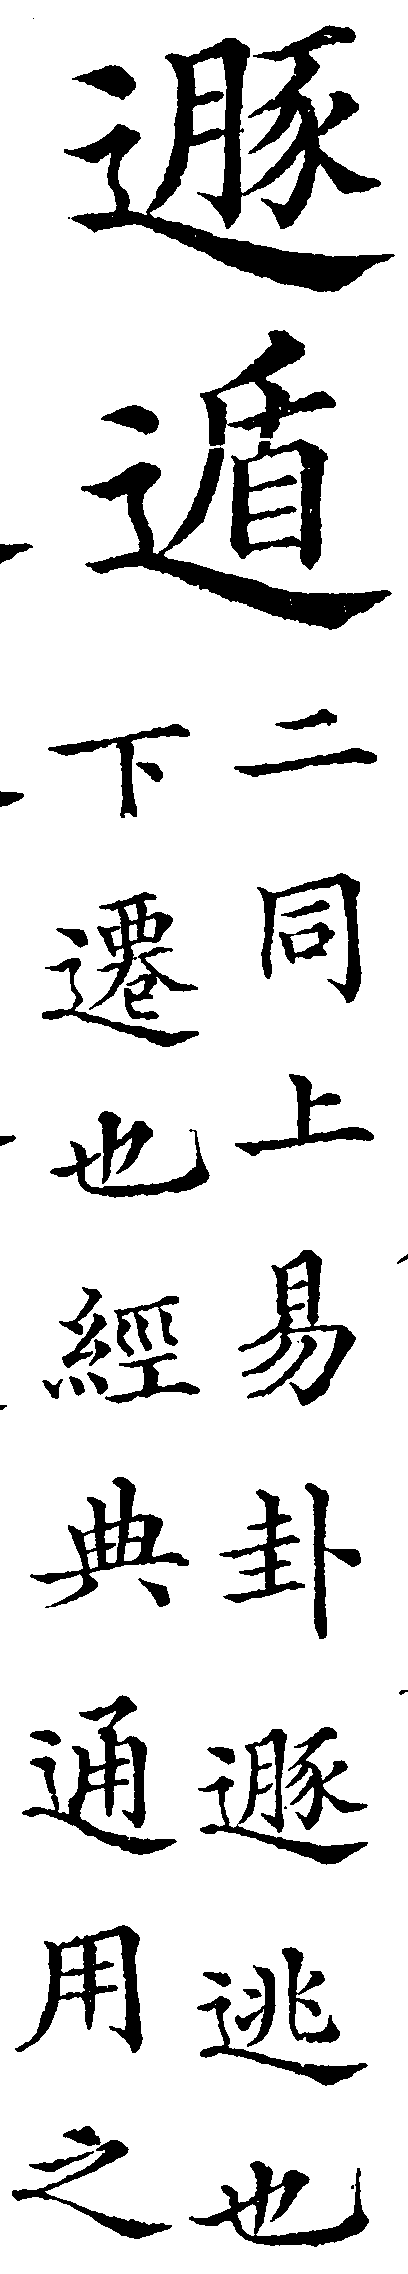 遯
遁
二同上易卦遯逃也
下遷也經典通用之